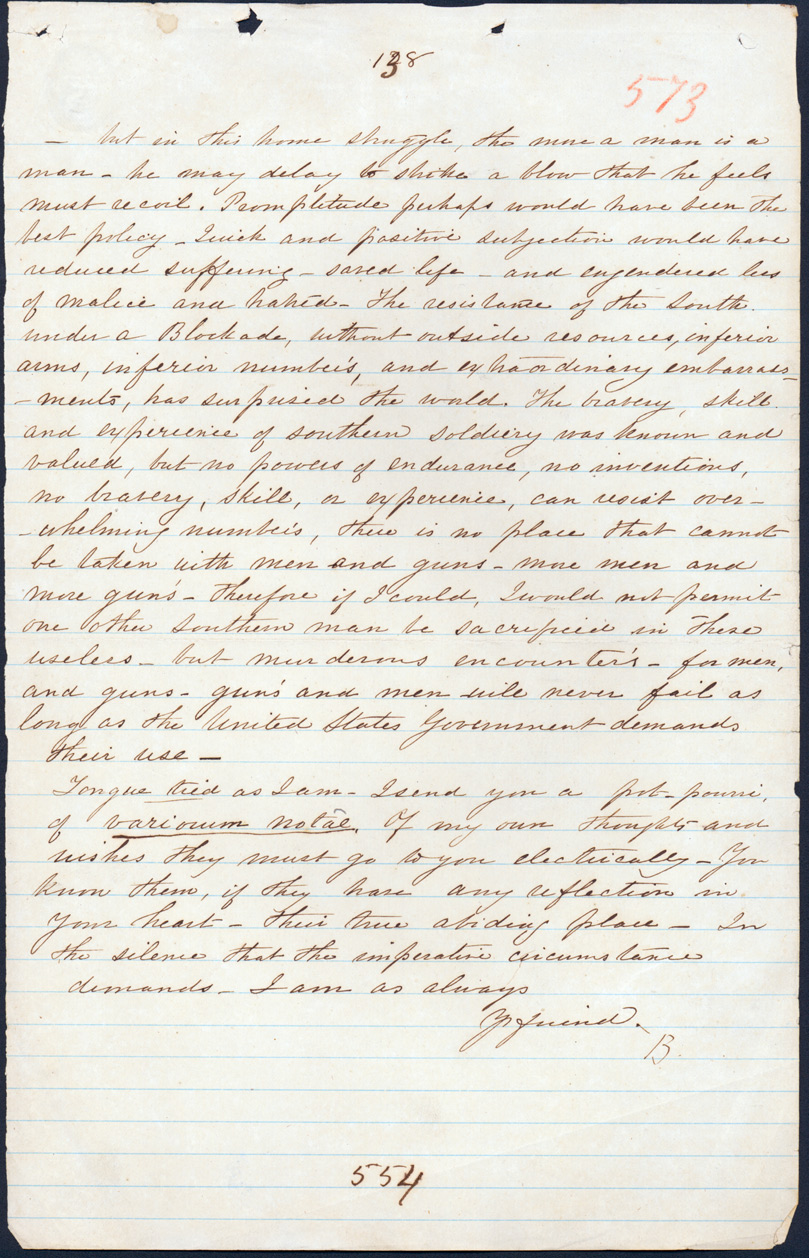 138
573
— but in this home struggle, the more a man is a
man – he may delay to strike a blow that he feels
must recoil. Promptitude perhaps would have been the
best policy – Quick and positive subjection would have
reduced suffering – saved life – and engendered less
of malice and hatred – The resistance of the South
under a Blockade, without outside resources, inferior
arms, inferior numbers, and extraordinary embarrass-
-ments, has surprised the world. The bravery, skill
and experience of southern soldiery was known and
valued, but no powers of endurance, no inventions,
no bravery, skill, or experience, can resist over-
-whelming numbers, there is no place that cannot
be taken with men and guns – more men and
more guns – therefore if I could, I would not permit
one other Southern man be sacrificed in these
useless – but murderous encounters – for men,
and guns – guns and men will never fail as
long as the United States Government demands
their use —
Tongue tied as I am – I send you a pot-pourri,
of variorum notæ. Of my own thoughts and
wishes they must go to you electrically – You
know them, if they have any reflection in
your heart – their true abiding place – In
the silence that the imperative circumstance
demands – I am as always
Yr friend.
B.
554